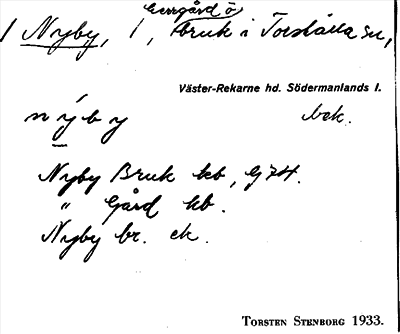 herrgård o
1 Nyby, 1, bruk i Torshälla sn,
Väster-Rekarne hd. Södermanlands l.
nýby bek.
Nyby Bruk kb, Gj74.
" Gård kb.
Nyby br. ek.
TORSTEN STENBORG 1933.